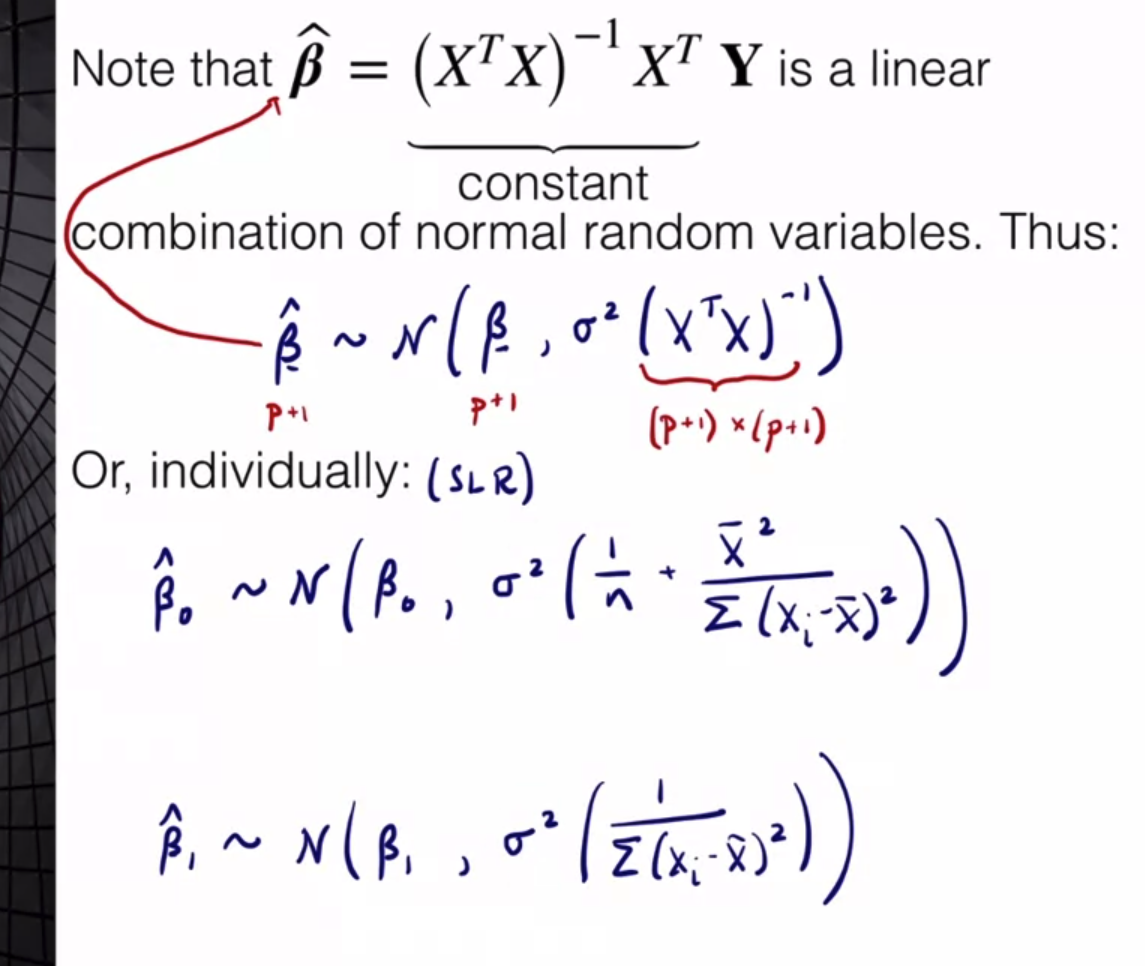 Note that β̂ = (XᵀX)⁻¹ Xᵀ Y is a linear
constant
combination of normal random variables. Thus:
β̂ ~ N(β, σ²(XᵀX)⁻¹)
p+1 p+1 (p+1) × (p+1)
Or, individually: (SLR)
β̂₀ ~ N(β₀, σ²(1/n + x̄²/Σ(xᵢ-x̄)²))
β̂₁ ~ N(β₁, σ²(1/Σ(xᵢ-x̄)²))